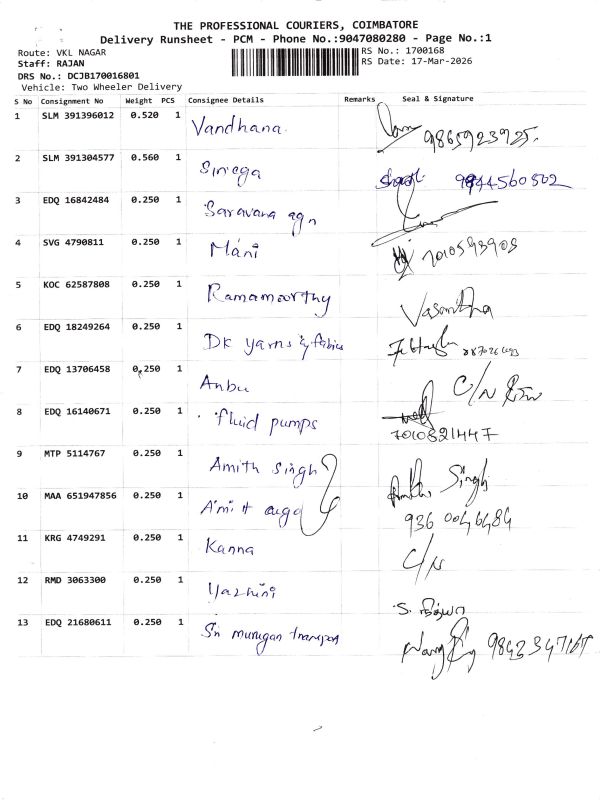 THE PROFESSIONAL COURIERS, COIMBATORE
Delivery Runsheet - PCM - Phone No.:9047080280 - Page No.:1
Route: VKL NAGAR
RS No.: 1700168
Staff: RAJAN
RS Date: 17-Mar-2026
DRS No.: DCJB170016801
Vehicle: Two Wheeler Delivery
S No Consignment No Weight PCS Consignee Details Remarks Seal & Signature
1 SLM 391396012 0.520 1 Vandhana 9865923925.
2 SLM 391304577 0.560 1 9844560502
3 EDQ 16842484 0.250 1 Saravana agn
4 SVG 4790811 0.250 1 Mani 7010593903
5 KOC 62587808 0.250 1 Ramamoorthy Vasantha
6 EDQ 18249264 0.250 1 DK yarns & fabics
7 EDQ 13706458 0.250 1 Anbu C/N
8 EDQ 16140671 0.250 1 fluid pumps
7010821447
9 MTP 5114767 0.250 1 Amith singh Singh
10 MAA 651947856 0.250 1 Amit
936 0046484
11 KRG 4749291 0.250 1 Kanna C/N
12 RMD 3063300 0.250 1 Yazhini S. நித்யா
13 EDQ 21680611 0.250 1 Sri murugan transport 9843347167